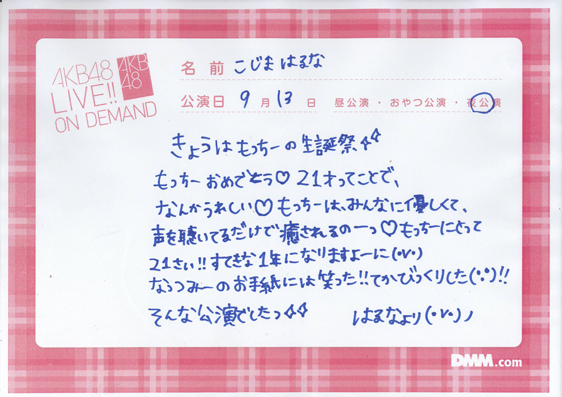 AKB48
LIVE!!
ON DEMAND
AKB
48
名 前 こじまはるな
公演日 9 月 13 日 昼公演・おやつ公演・夜公演
きょうはもっちーの生誕祭
もっちーおめでとう♡ 21才ってことで、
なんかうれしい♡もっちーは、みんなに優しくて、
声を聴いてるだけで癒されるのーっ♡もっちーにとって
21さい!!すてきな1年になりますよーに(・v・)
なっつみーのお手紙には笑った!!てかびっくりした(・°・)!!
そんな公演でしたっ
はるなより(・v・)ノ
DMM.com